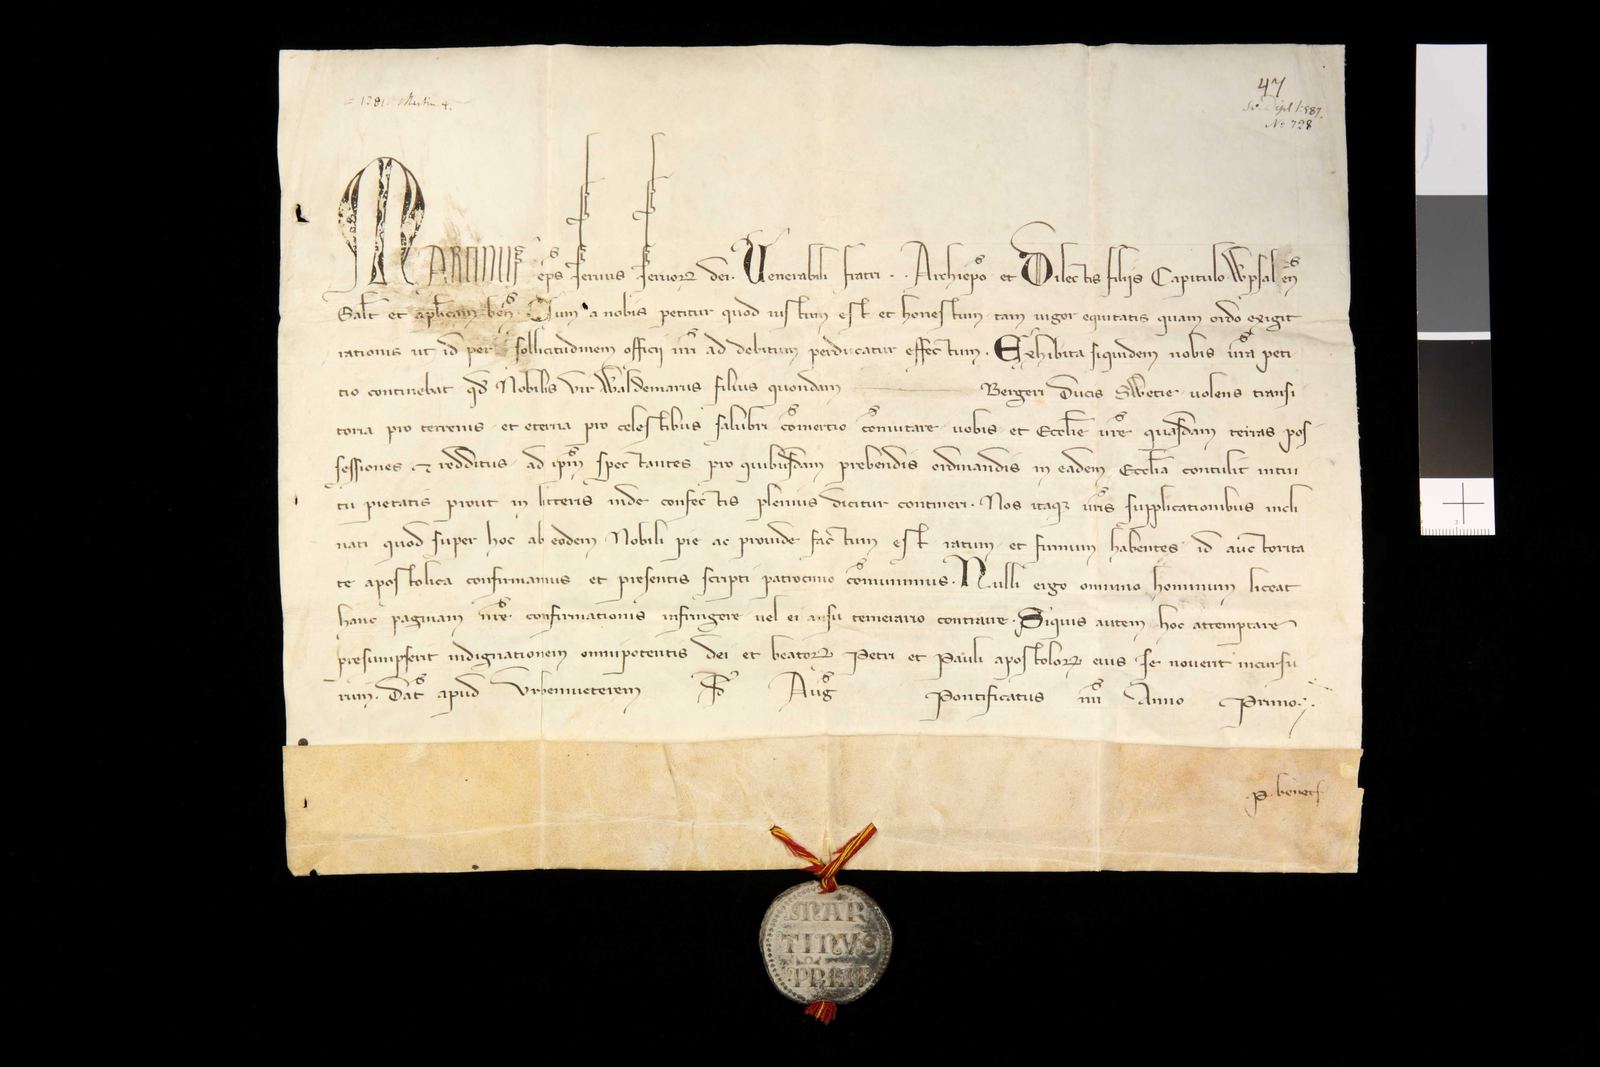 = 1281 Martin 4.
47
Sv. Dipl. 1. 587.
No 728
MARTINUS eps servus servorꝝ dei. Venerabili fratri . . Archiepo et Dilectis filiis Capitulo Wpsalen
Salt et aplicam ben. Cum a nobis petitur quod iustum est et honestum tam vigor equitatis quam ordo exigit
rationis ut id per sollicitudinem officii nri ad debitum perducatur effectum. Exhibita siquidem nobis vra peti
tio continebat qd Nobilis vir Waldemarus filius quondam Bergeri Ducis Swetie volens transi
toria pro terrenis et eterna pro celestibus salubri comertio comutare vobis et Ecclie vre quasdam terras pos-
sessiones et redditus ad ipm spectantes pro quibusdam prebendis ordinandis in eadem Ecclia contulit intui
tu pietatis prout in litteris inde confectis plenius dicitur contineri. Nos itaqꝫ vris supplicationibus incli
nati quod super hoc ab eodem Nobili pie ac provide factum est ratum et firmum habentes id auctorita
te apostolica confirmamus et presentis scripti patrocinio comunimus. Nulli ergo omnino hominum liceat
hanc paginam nre confirmationis infringere vel ei ausu temerario contraire. Siquis autem hoc attemptare
presumpserit indignationem omnipotentis dei et beatorꝝ Petri et Pauli apostolorꝝ eius se noverit incursu
rum. Dat apud Urbemveterem Aug Pontificatus nri Anno Primo
MAR
TINVS
PP IIII